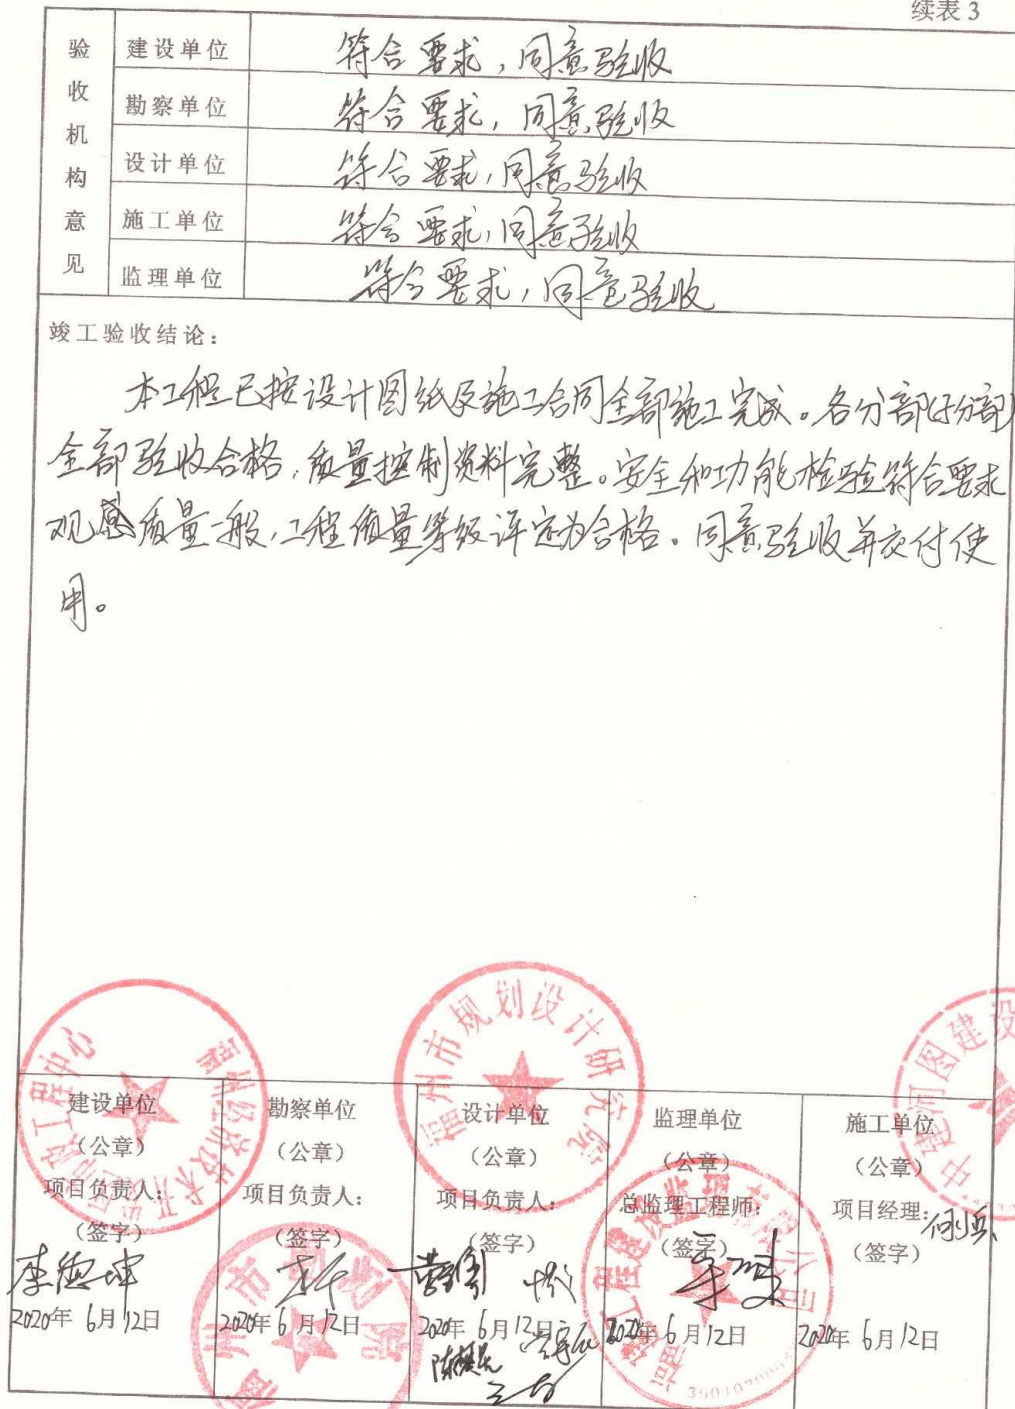 续表3
验收机构意见
建设单位 符合要求，同意验收
勘察单位 符合要求，同意验收
设计单位 符合要求，同意验收
施工单位 符合要求，同意验收
监理单位 符合要求，同意验收
竣工验收结论：
本工程已按设计图纸及施工合同全部施工完成。各分部(子分部)
全部验收合格，质量控制资料完整。安全和功能检验符合要求
观感质量一般，工程质量等级评定为合格。同意验收并交付使
用。
福州市规划设计研究院
中建河图建设
建设单位
（公章）
项目负责人：
（签字）
李德坤
2020年6月12日
勘察单位
（公章）
项目负责人：
（签字）
2020年6月12日
福州市
设计单位
（公章）
项目负责人：
（签字）
2020年6月12日
监理单位
（公章）
总监理工程师：
（签字）
2020年6月12日
施工单位
（公章）
项目经理：
（签字）
2020年6月12日